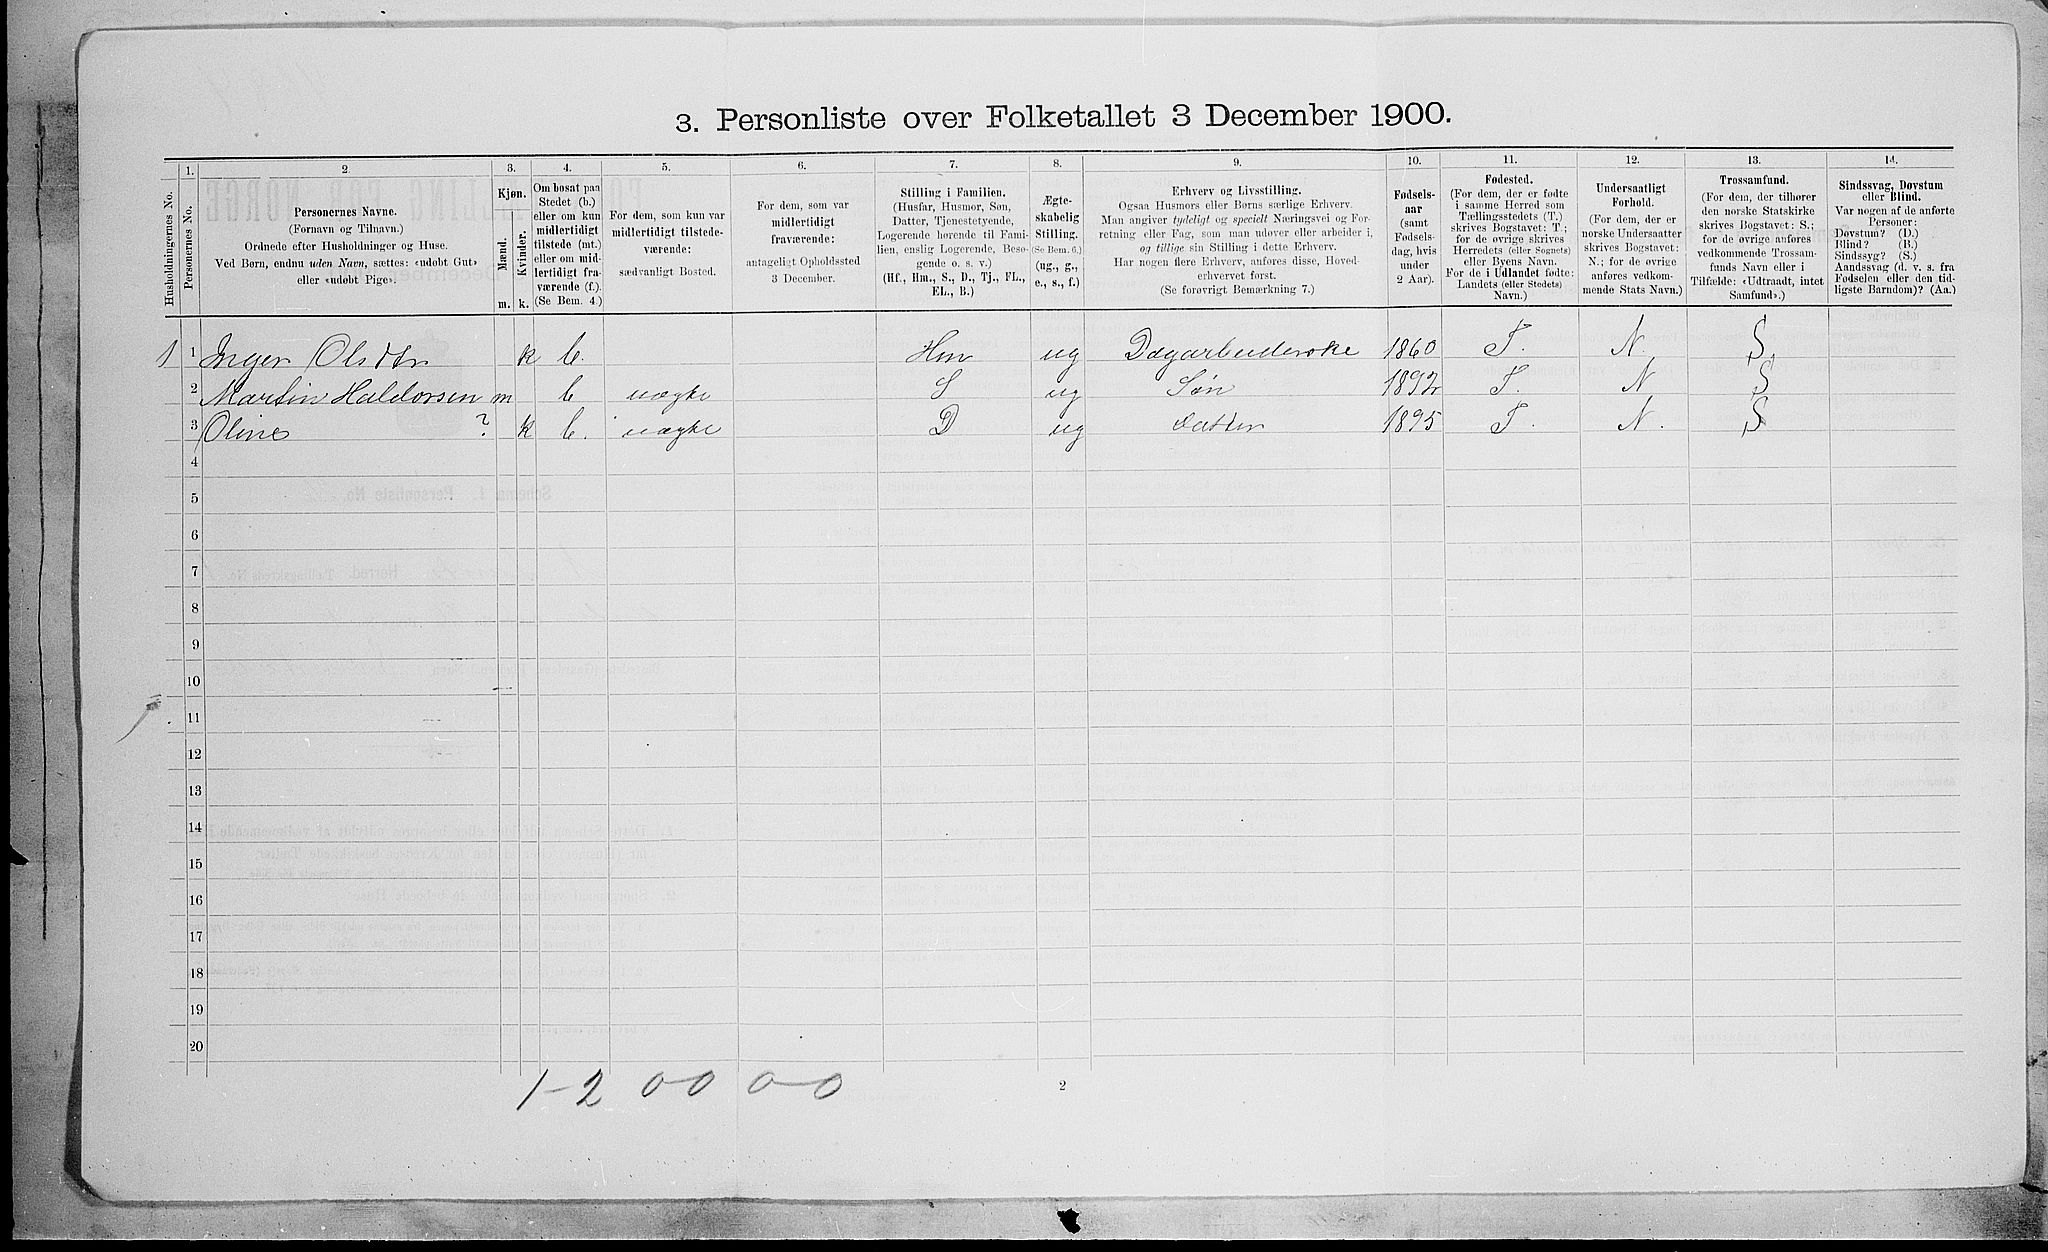 3. Personliste over Folketallet 3 December 1900.
1. 2. 3. 4. 5. 6. 7. 8. 9. 10. 11. 12. 13. 14.
Husholdningernes No.
Personernes No.
Personernes Navne.
(Fornavn og Tilnavn.)
Ordnede efter Husholdninger og Huse.
Ved Børn, endnu uden Navn, sættes: «udøbt Gut»
eller «udøbt Pige».
Kjøn.
Mænd.
Kvinder.
m. k.
Om bosat paa
Stedet (b.)
eller om kun
midlertidigt
tilstede (mt.)
eller om mid-
lertidigt fra-
værende (f.).
(Se Bem. 4.)
For dem, som kun var
midlertidigt tilstede-
værende:
sædvanligt Bosted.
For dem, som var
midlertidigt
fraværende:
antageligt Opholdssted
3 December.
Stilling i Familien.
(Husfar, Husmor, Søn,
Datter, Tjenestetyende,
Logerende hørende til Fami-
lien, enslig Logerende, Besø-
gende o. s. v.)
(Hf., Hm., S., D., Tj., FL.,
EL., B.)
Ægte-
skabelig
Stilling.
(Se Bem. 6.)
(ug., g.,
e., s., f.)
Erhverv og Livsstilling.
Ogsaa Husmors eller Børns særlige Erhverv.
Man angiver tydeligt og specielt Næringsvei og For-
retning eller Fag, som man udøver eller arbeider i,
og tillige sin Stilling i dette Erhverv.
Har nogen flere Erhverv, anføres disse, Hoved-
erhvervet først.
(Se forøvrigt Bemærkning 7.)
Fødsels-
aar
(samt
Fødsels-
dag, hvis
under
2 Aar).
Fødested.
(For dem, der er fødte
i samme Herred som
Tællingsstedets (T.)
skrives Bogstavet: T.;
for de øvrige skrives
Herredets (eller Sognets)
eller Byens Navn.
For de i Udlandet fødte:
Landets (eller Stedets)
Navn.)
Undersaatligt
Forhold.
(For dem, der er
norske Undersaatter
skrives Bogstavet:
N.; for de øvrige
anføres vedkom-
mende Stats Navn.)
Trossamfund.
(For dem, der tilhører
den norske Statskirke
skrives Bogstavet: S.;
for de øvrige anføres
vedkommende Trossam-
funds Navn eller i
Tilfælde: «Udtraadt, intet
Samfund».)
Sindssvag, Døvstum
eller Blind.
Var nogen af de anførte
Personer:
Døvstum? (D.)
Blind? (B.)
Sindssyg? (S.)
Aandssvag (d. v. s. fra
Fødselen eller den tid-
ligste Barndom)? (Aa.)
1 1 Inger Olsdtr k b. Hm ug Dagarbeiderske 1860 T. N. S.
2 Martin Haldorsen m b ug S Søn 1892 T. N S
3 Oline ? k b. D ug datter 1895 T. N. S
4
5
6
7
8
9
10
11
12
13
14
15
16
17
18
19
20
1-2 00 0-0
2